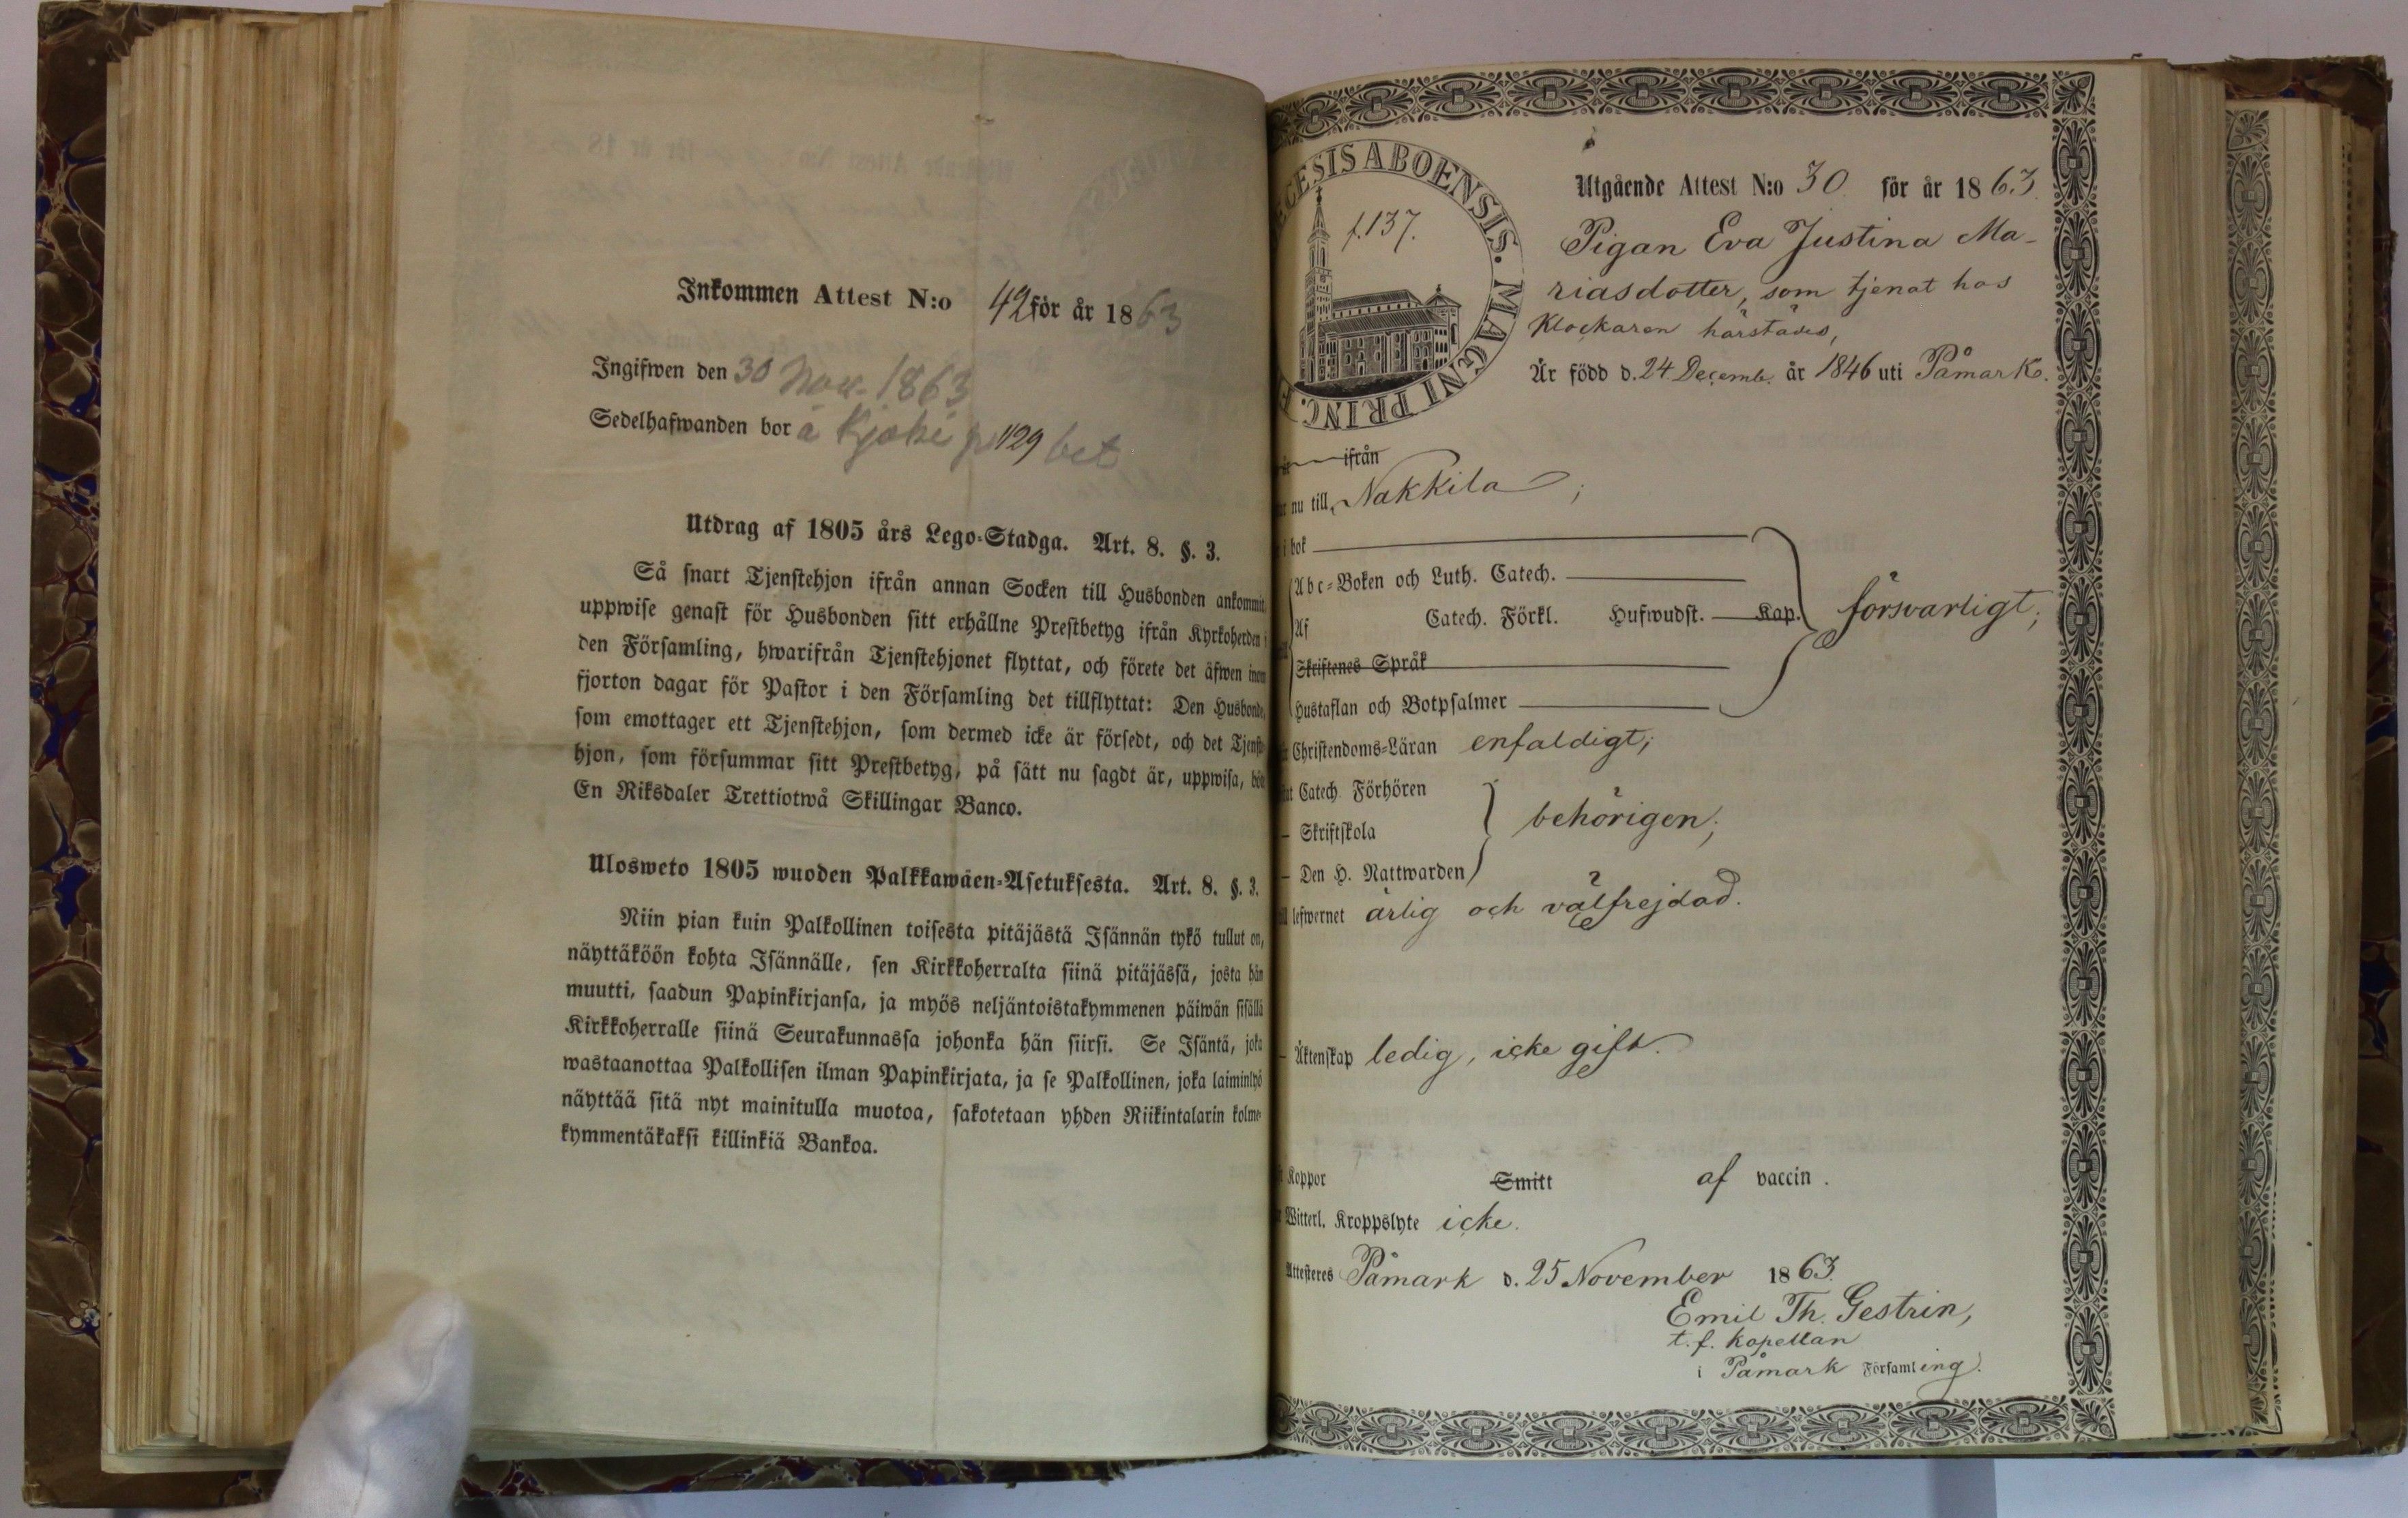 Inkommen Attest N:o 42 för år 1863
Ingifwen den 30 Nov. 1863
Sedelhafwanden bor å Kjoki p 129 bet
Utdrag af 1805 års Lego-Stadga. Art. 8. §. 3.
Så snart Tjenstehjon ifrån annan Socken till Husbonden ankommit
uppwise genast för Husbonden sitt erhållne Prestbetyg ifrån Kyrkoherden i
den Församling, hwarifrån Tjenstehjonet flyttat, och förete det äfwen inom
fjorton dagar för Pastor i den Församling det tillflyttat: Den Husbonde,
som emottager ett Tjenstehjon, som dermed icke är försedt, och det Tjenste-
hjon, som försummar sitt Prestbetyg, på sätt nu sagdt är, uppwisa, böte
En Riksdaler Trettiotwå Skillingar Banco.
Ulosweto 1805 wuoden Palkkawäen-Asetuksesta. Art. 8. §. 3.
Niin pian kuin Palkollinen toisesta pitäjästä Isännän tykö tullut on,
näyttäköön kohta Isännälle, sen Kirkkoherralta siinä pitäjässä, josta hän
muutti, saadun Papinkirjansa, ja myös neljäntoistakymmenen päiwän sisällä
Kirkkoherralle siinä Seurakunnassa johonka hän siirsi. Se Isäntä, joka
wastaanottaa Palkollisen ilman Papinkirjata, ja se Palkollinen, joka laiminlyö
näyttää sitä nyt mainitulla muotoa, sakotetaan yhden Riikintalarin kolme-
kymmentäkaksi killinkiä Bankoa.
CESIS ABOENSIS. MAGNI PRINC. F
f. 137.
Utgående Attest N:o 30. för år 1863.
Pigan Eva Justina Ma-
riasdotter, som tjenat hos
Klockaren härstädes,
Är född d. 24 Decemb. år 1846 uti Påmark.
ifrån
nu till Nakkila;
i bok
Abc-Boken och Luth. Catech.
Af Catech. Förkl. Hufwudst. Kap. försvarligt;
Skriftenes Språk
Hustaflan och Botpsalmer
Christendoms-Läran enfaldigt;
Catech. Förhören
– Skriftskola behörigen;
– Den H. Nattwarden
lefwernet ärlig och välfrejdad.
– Äktenskap ledig, icke gift.
Koppor Smitt af vaccin.
Witterl. Kroppslyte icke.
Attesteres Påmark d. 25 November 1863.
Emil Th. Gestrin,
t. f. Kapellan
i Påmark Församling.